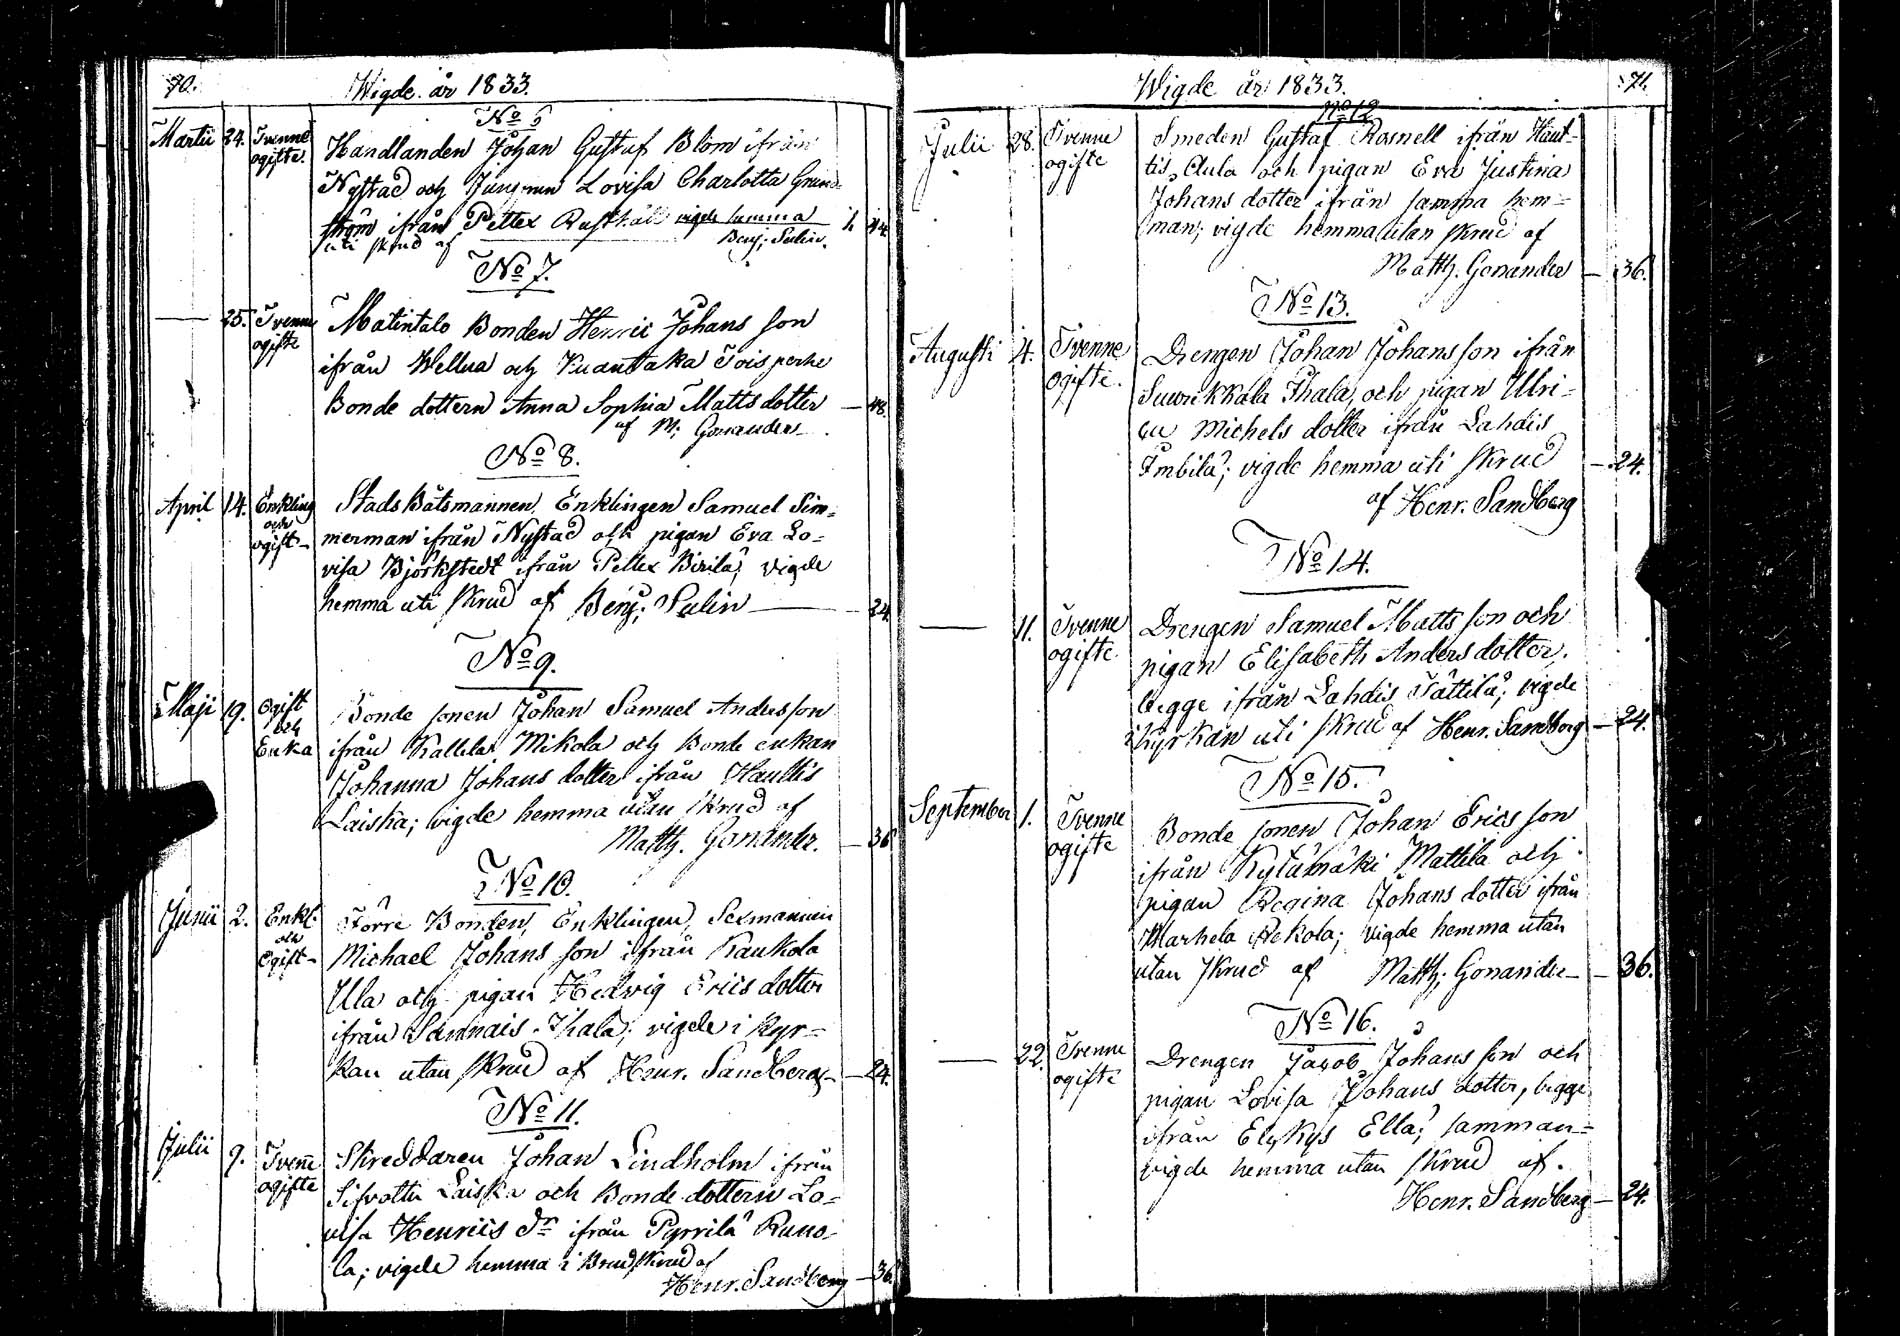 70. Wigde år 1833.
No 6
Martii 24. Tvenne ogifte. Handlanden Johan Gustaf Blom ifrån
Nystad och Jungfrun Lovisa Charlotta Grund-
ström ifrån Peltex Rusthåll vigde hemma 1 44
uti skrud af Benj. Salin.
No 7.
— 25. Tvenne ogifte Matintalo Bonden Henric Johans son
ifrån Wellua och Kuanttaka Toisperhe
Bonde dottern Anna Sophia Matts dotter — 48.
af M. Gonander
No 8.
April 14. Enkling och ogift Stads Båtsmannen, Enklingen Samuel Sim-
merman ifrån Nystad och pigan Eva Lo-
visa Björkstedt ifrån Peltex Birilä; vigde
hemma uti skrud af Benj. Salin — 24.
No 9.
Maji 19. Ogift och Enka Bonde sonen Johan Samuel Andersson
ifrån Kallela Mikola och Bonde enkan
Johanna Johans dotter ifrån Hauttis
Laiska; vigde hemma utan skrud af
Matth. Gonander. — 36
No 10.
Junii 2. Enkl. och Ogift Förre Bonden, Enklingen, Sexmannen
Michael Johans son ifrån Kaukola
Ula och pigan Hedvig Erics dotter
ifrån Sannais Ihala; vigde i kyr-
kan utan skrud af Henr. Sandberg — 24.
No 11.
Julii 9. Tvenne ogifte Skreddaren Johan Lindholm ifrån
Laiska och Bonde dottern Lo-
visa Henrics dr ifrån Pyrrilä Runo-
la; vigde hemma i Brudskrud af
Henr. Sandberg — 36.
Wigde år 1833. 71.
No 12
Julii 28. Tvenne ogifte Smeden Gustaf Rosnell ifrån Haut-
tis Aula och pigan Eva Justina
Johans dotter ifrån samma hem-
man; vigde hemma utan skrud af
Matth. Gonander — 36.
No 13.
Augusti 4. Tvenne ogifte. Drengen Johan Johansson ifrån
Suurikkala Ihala, och pigan Ulri-
ca Michels dotter ifrån Lahdis
Imbilä; vigde hemma uti skrud — 24.
af Henr. Sandberg
No 14.
— 11. Tvenne ogifte. Drengen Samuel Matts son och
pigan Elisabeth Anders dotter,
begge ifrån Lahdis Tättilä; vigde
i kyrkan uti skrud af Henr. Sandberg — 24.
No 15.
September 1. Tvenne ogifte Bonde sonen Johan Erics son
ifrån Kylämäki Mattila och
pigan Regina Johans dotter ifrån
Karhela Pekola; vigde hemma utan
utan skrud af Matth. Gonander — 36.
No 16.
— 22. Tvenne ogifte Drengen Jacob Johans son och
pigan Lovisa Johans dotter, begge
ifrån Elykys Ella; samman-
vigde hemma utan skrud af.
Henr. Sandberg — 24.